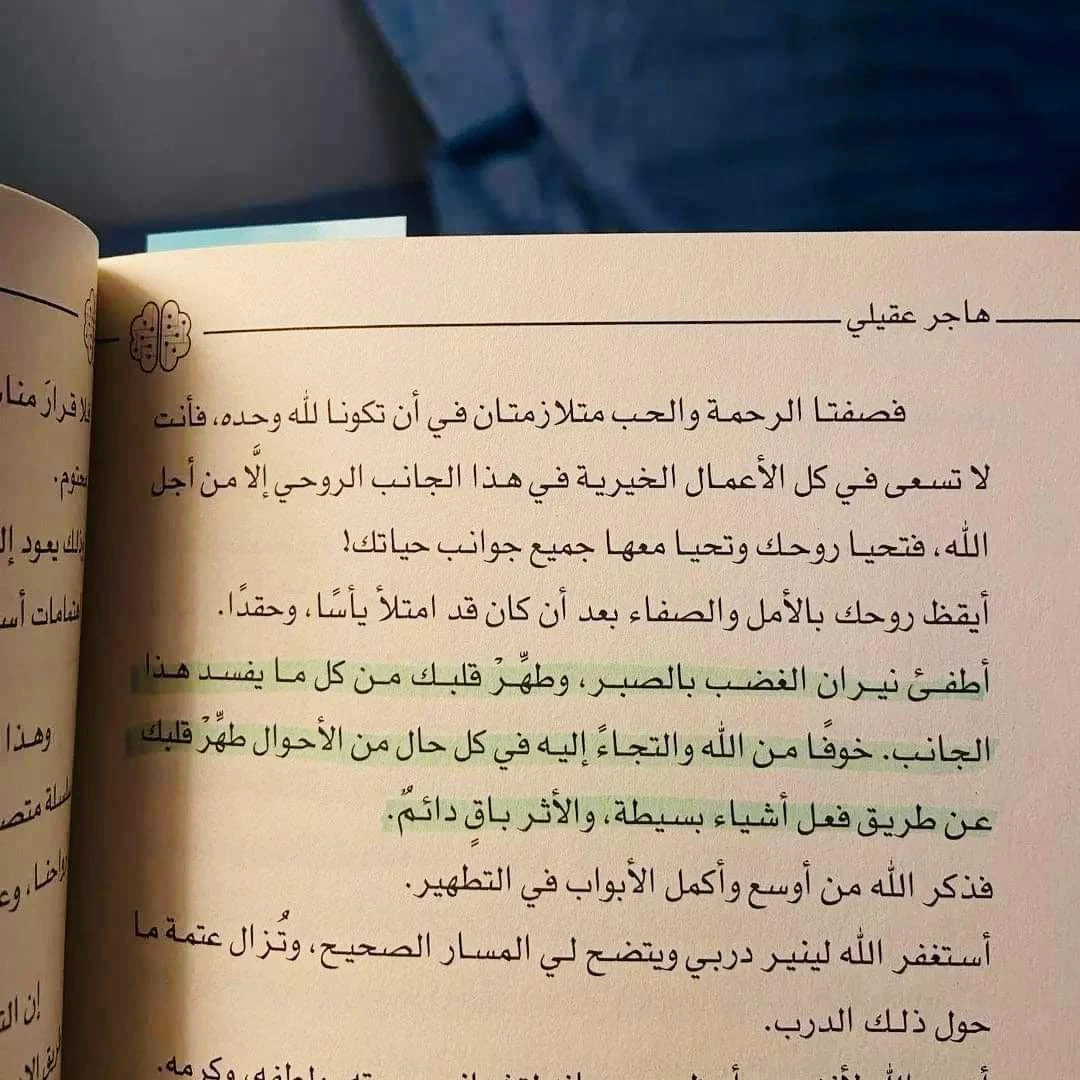 هاجر عقيلي
فصفتا الرحمة والحب متلازمتان في أن تكونا لله وحده، فأنت
لا تسعى في كل الأعمال الخيرية في هذا الجانب الروحي إلَّا من أجل
الله، فتحيا روحك وتحيا معها جميع جوانب حياتك!
أيقظ روحك بالأمل والصفاء بعد أن كان قد امتلأ يأسًا، وحقدًا.
أطفئ نيران الغضب بالصبر، وطهِّرْ قلبك من كل ما يفسد هذا
الجانب. خوفًا من الله والتجاءً إليه في كل حال من الأحوال طهِّرْ قلبك
عن طريق فعل أشياء بسيطة، والأثر باقٍ دائمٌ.
فذكر الله من أوسع وأكمل الأبواب في التطهير.
أستغفر الله لينير دربي ويتضح لي المسار الصحيح، وتُزال عتمة ما
حول ذلك الدرب.
وكرمه.
قرارَ
يعود
وهذا